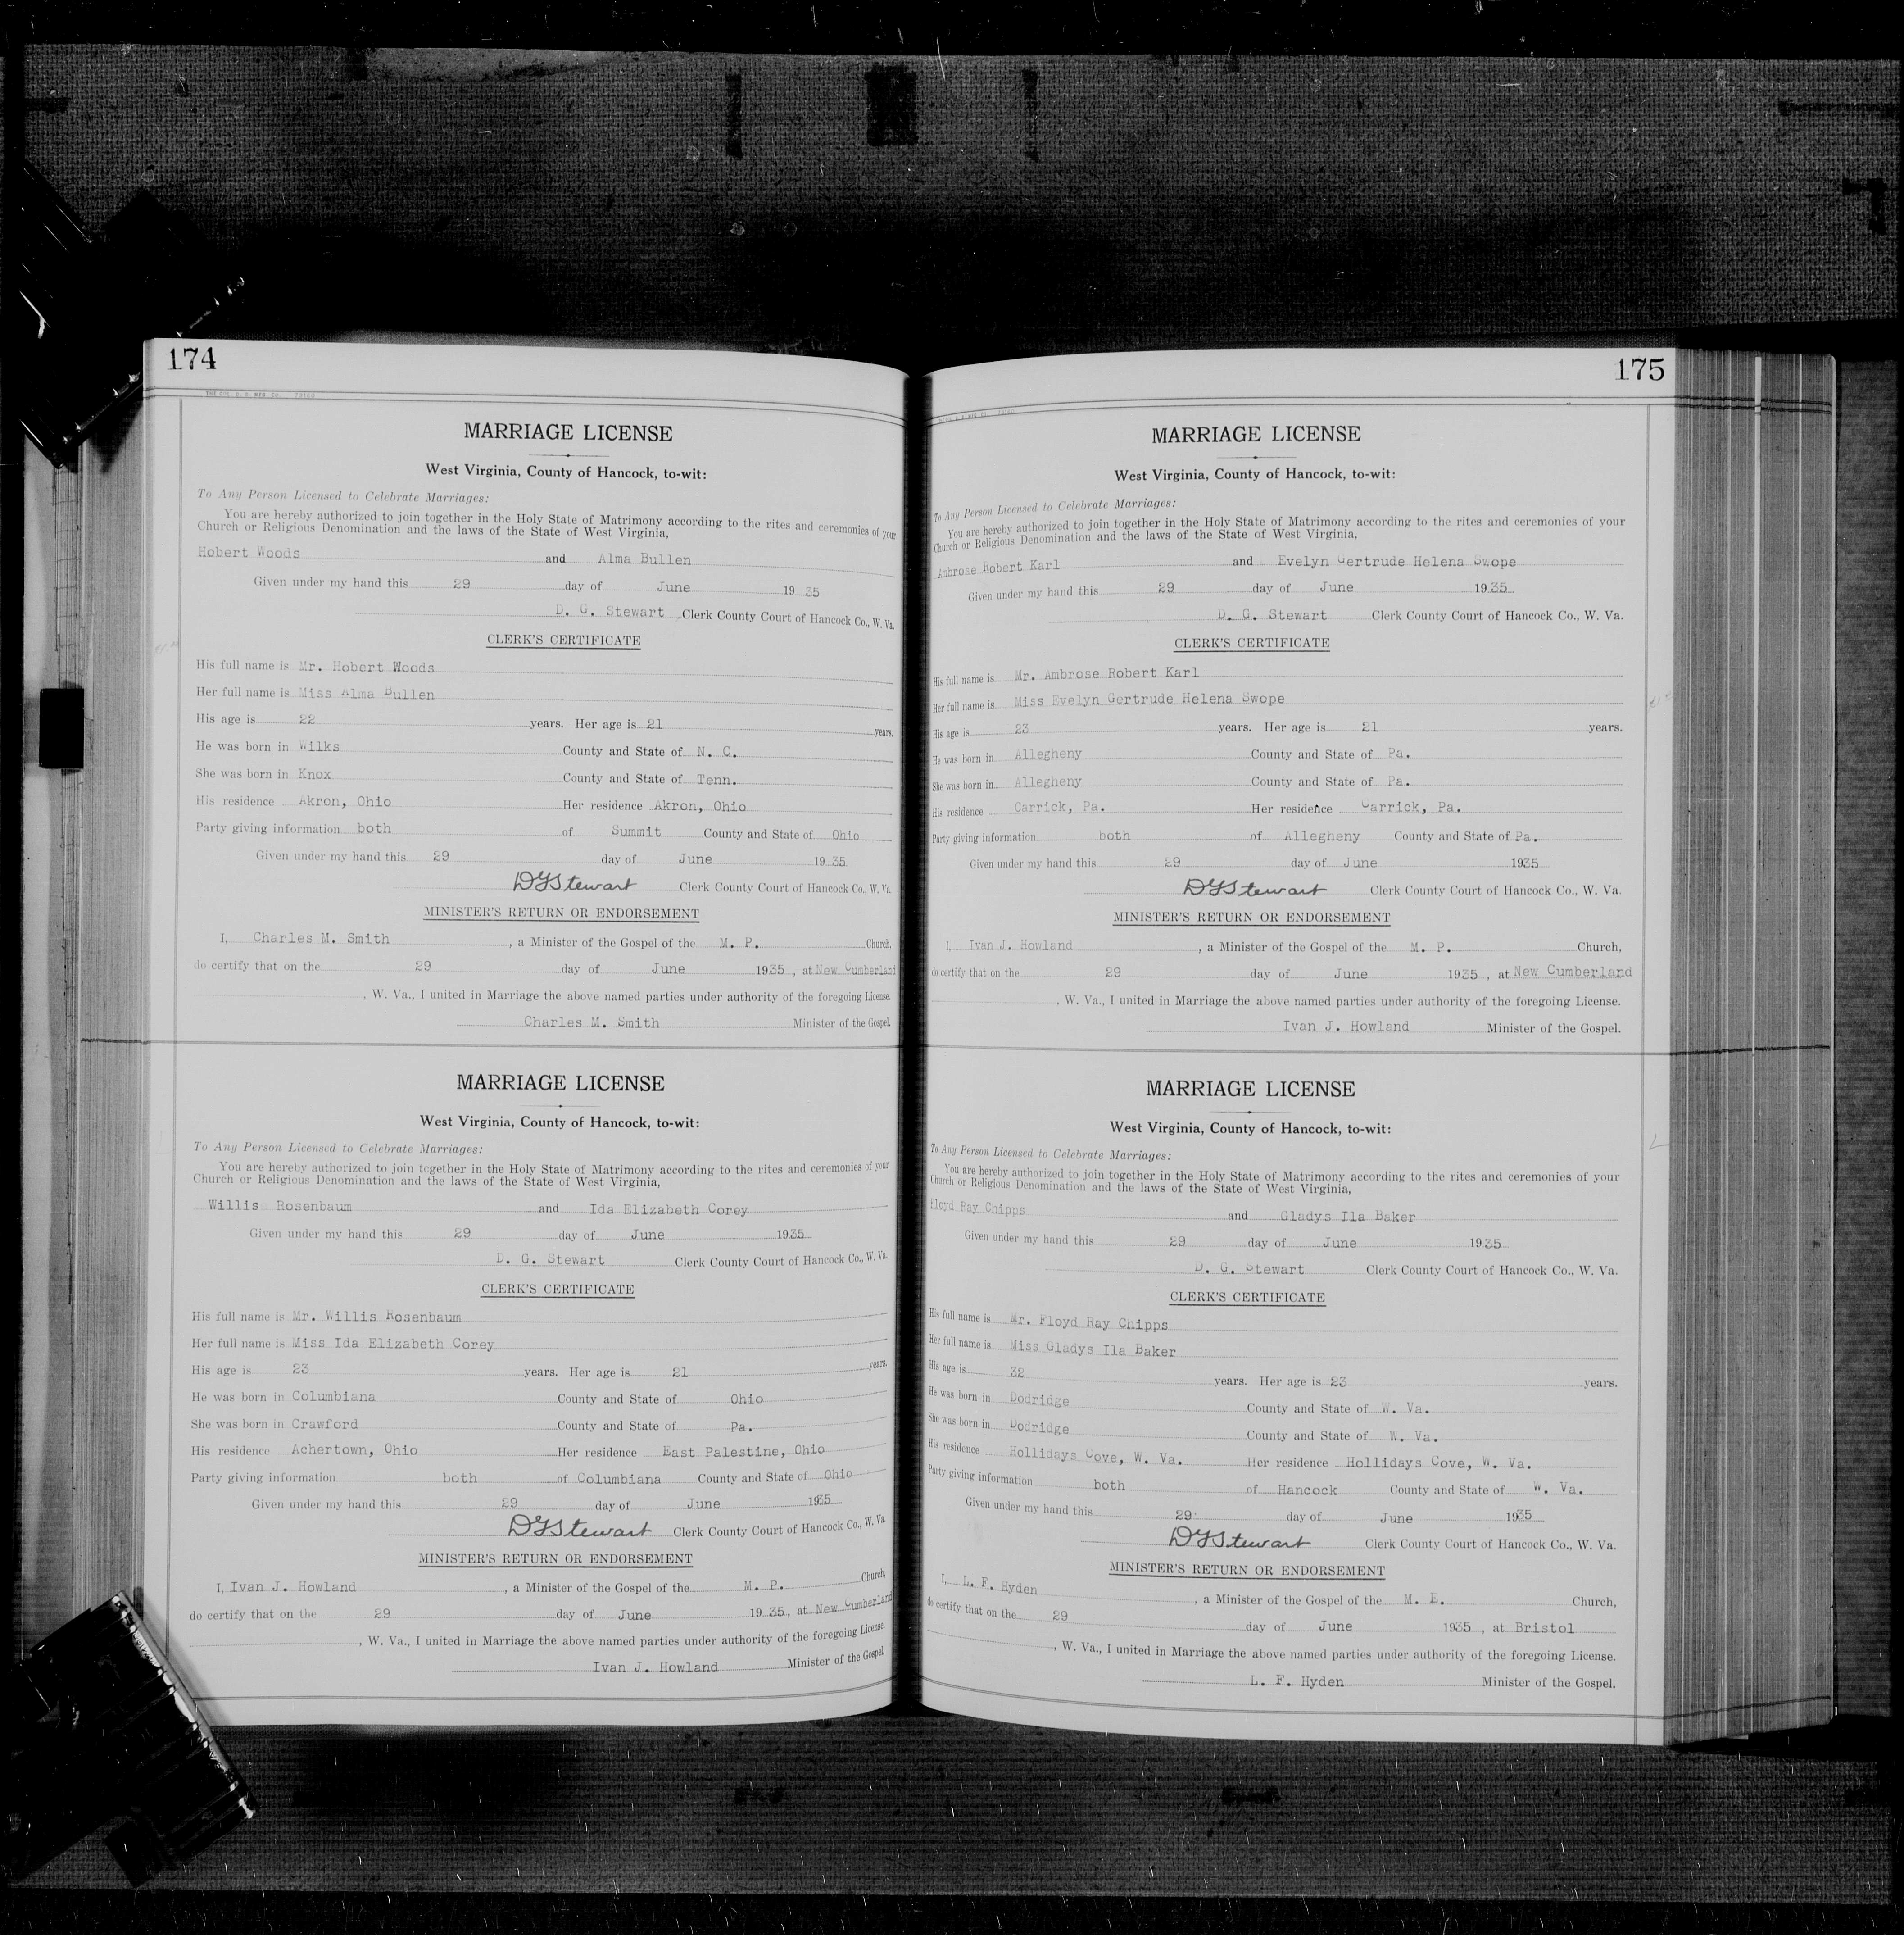 174
MARRIAGE LICENSE
West Virginia, County of Hancock, to-wit:
To Any Person Licensed to Celebrate Marriages:
You are hereby authorized to join together in the Holy State of Matrimony according to the rites and ceremonies of your
Church or Religious Denomination and the laws of the State of West Virginia,
Hobert Woods and Alma Bullen
Given under my hand this 29 day of June 1935
D. G. Stewart, Clerk County Court of Hancock Co., W. Va.
CLERK'S CERTIFICATE
His full name is Mr. Hobert Woods
Her full name is Miss Alma Bullen
His age is 22 years. Her age is 21 years.
He was born in Wilks County and State of N. C.
She was born in Knox County and State of Tenn.
His residence Akron, Ohio Her residence Akron, Ohio
Party giving information both of Summit County and State of Ohio
Given under my hand this 29 day of June 1935
DGStewart Clerk County Court of Hancock Co., W. Va.
MINISTER'S RETURN OR ENDORSEMENT
I, Charles M. Smith, a Minister of the Gospel of the M. P. Church,
do certify that on the 29 day of June 1935, at New Cumberland
, W. Va., I united in Marriage the above named parties under authority of the foregoing License.
Charles M. Smith Minister of the Gospel.
MARRIAGE LICENSE
West Virginia, County of Hancock, to-wit:
To Any Person Licensed to Celebrate Marriages:
You are hereby authorized to join together in the Holy State of Matrimony according to the rites and ceremonies of your
Church or Religious Denomination and the laws of the State of West Virginia,
Willis Rosenbaum and Ida Elizabeth Corey
Given under my hand this 29 day of June 1935
D. G. Stewart Clerk County Court of Hancock Co., W. Va.
CLERK'S CERTIFICATE
His full name is Mr. Willis Rosenbaum
Her full name is Miss Ida Elizabeth Corey
His age is 23 years. Her age is 21 years.
He was born in Columbiana County and State of Ohio
She was born in Crawford County and State of Pa.
His residence Achertown, Ohio Her residence East Palestine, Ohio
Party giving information both of Columbiana County and State of Ohio
Given under my hand this 29 day of June 1935
DGStewart Clerk County Court of Hancock Co., W. Va.
MINISTER'S RETURN OR ENDORSEMENT
I, Ivan J. Howland, a Minister of the Gospel of the M. P. Church,
do certify that on the 29 day of June 1935, at New Cumberland
, W. Va., I united in Marriage the above named parties under authority of the foregoing License.
Ivan J. Howland Minister of the Gospel.
175
MARRIAGE LICENSE
West Virginia, County of Hancock, to-wit:
To Any Person Licensed to Celebrate Marriages:
You are hereby authorized to join together in the Holy State of Matrimony according to the rites and ceremonies of your
Church or Religious Denomination and the laws of the State of West Virginia,
Ambrose Robert Karl and Evelyn Gertrude Helena Swope
Given under my hand this 29 day of June 1935
D. G. Stewart Clerk County Court of Hancock Co., W. Va.
CLERK'S CERTIFICATE
His full name is Mr. Ambrose Robert Karl
Her full name is Miss Evelyn Gertrude Helena Swope
His age is 23 years. Her age is 21 years.
He was born in Allegheny County and State of Pa.
She was born in Allegheny County and State of Pa.
His residence Carrick, Pa. Her residence Carrick, Pa.
Party giving information both of Allegheny County and State of Pa.
Given under my hand this 29 day of June 1935
DGStewart Clerk County Court of Hancock Co., W. Va.
MINISTER'S RETURN OR ENDORSEMENT
I, Ivan J. Howland, a Minister of the Gospel of the M. P. Church,
do certify that on the 29 day of June 1935, at New Cumberland
, W. Va., I united in Marriage the above named parties under authority of the foregoing License.
Ivan J. Howland Minister of the Gospel.
MARRIAGE LICENSE
West Virginia, County of Hancock, to-wit:
To Any Person Licensed to Celebrate Marriages:
You are hereby authorized to join together in the Holy State of Matrimony according to the rites and ceremonies of your
Church or Religious Denomination and the laws of the State of West Virginia,
Floyd Ray Chipps and Gladys Ila Baker
Given under my hand this 29 day of June 1935
D. G. Stewart Clerk County Court of Hancock Co., W. Va.
CLERK'S CERTIFICATE
His full name is Mr. Floyd Ray Chipps
Her full name is Miss Gladys Ila Baker
His age is 32 years. Her age is 23 years.
He was born in Dodridge County and State of W. Va.
She was born in Dodridge County and State of W. Va.
His residence Hollidays Cove, W. Va. Her residence Hollidays Cove, W. Va.
Party giving information both of Hancock County and State of W. Va.
Given under my hand this 29 day of June 1935
DGStewart Clerk County Court of Hancock Co., W. Va.
MINISTER'S RETURN OR ENDORSEMENT
I, L. F. Hyden, a Minister of the Gospel of the M. E. Church,
do certify that on the 29 day of June 1935, at Bristol
, W. Va., I united in Marriage the above named parties under authority of the foregoing License.
L. F. Hyden Minister of the Gospel.